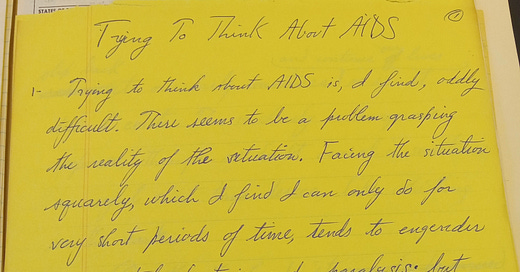 STATES OF
Trying To Think About AIDS
1
1- Trying to think about AIDS is, I find, oddly
difficult. There seems to be a problem grasping
the reality of the situation. Facing the situation
squarely, which I find I can only do for
very short periods of time, tends to engender
paralysis; but